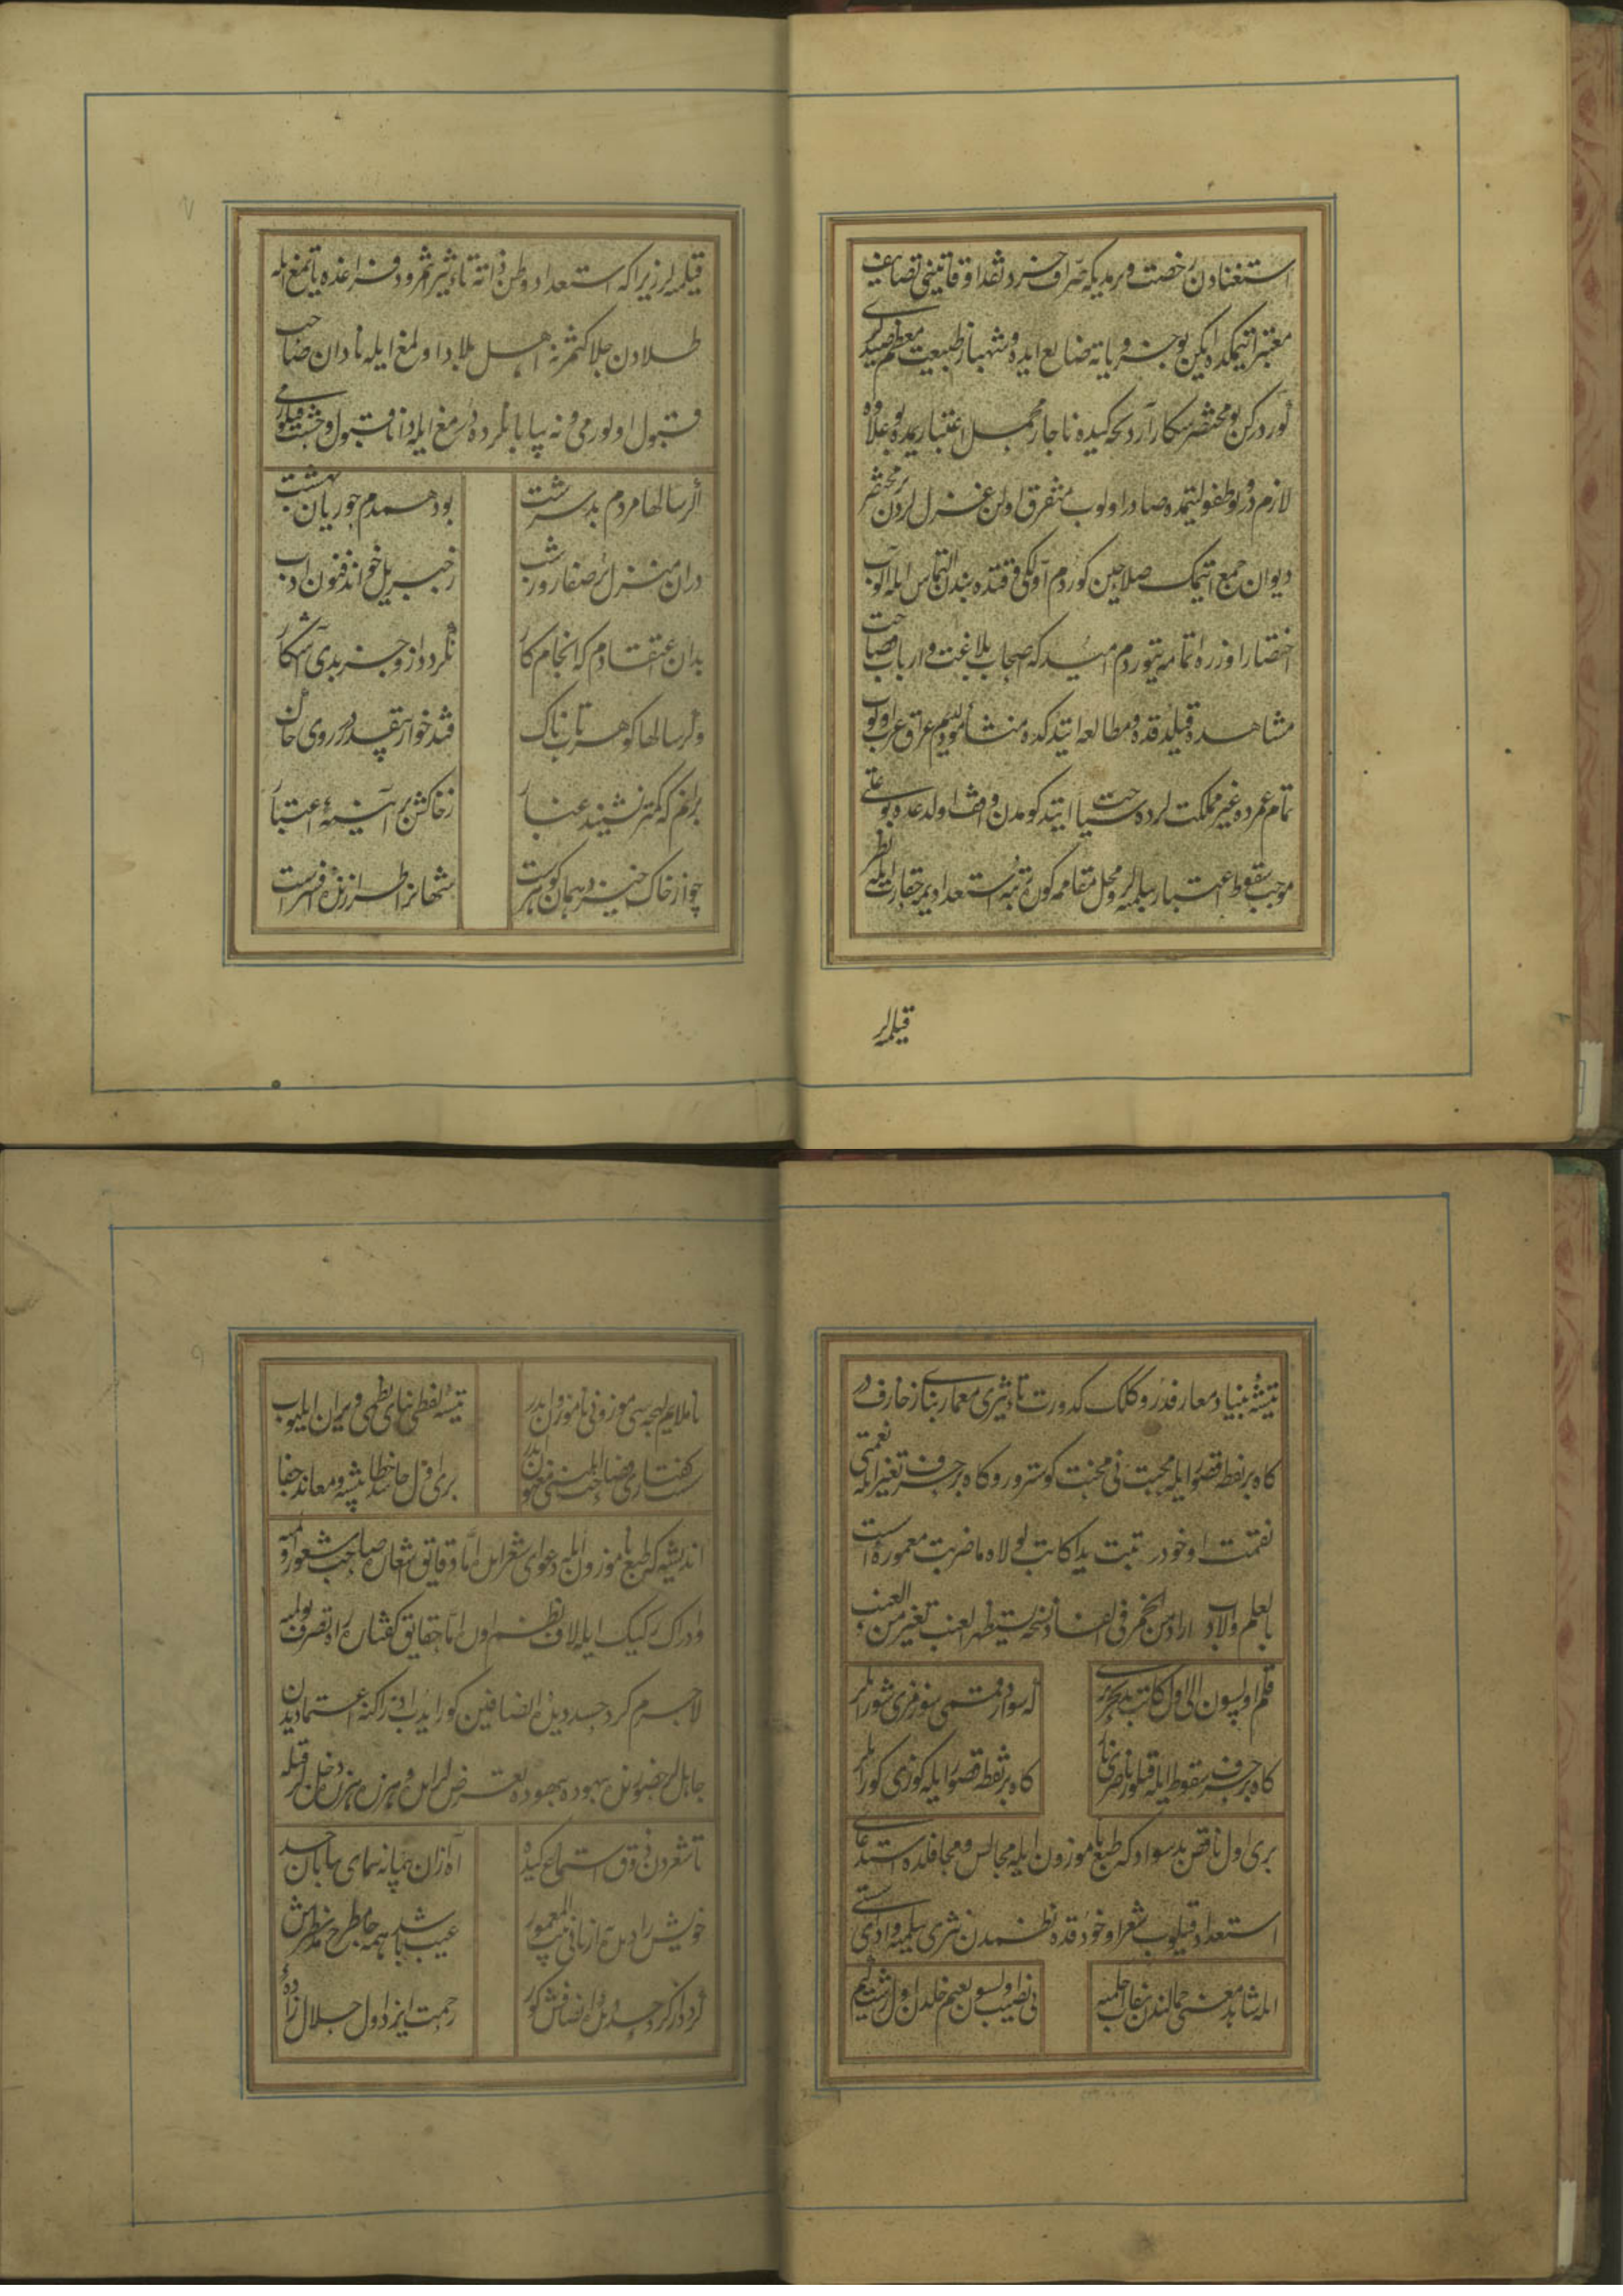 استغنادن رخصت ویرمدیکه صراف خرد نقد اوقاتینی تصانیف
معتبر اتیمکده ایکن بو جزویاته ضایع ایده و شهباز طبیعت معظم صیدلری
کوررکن بو محقر شکار آردنجه کیده ناچار مجمل اعتبار یمده بو علاوه
لازم در بو طفولیتمده صادر اولوب متفرق اولن غزل لردن بر مختصر
دیوان جمع اتیمک صلاحین کوردم اولکی وقتده بندن التماس ایله الوب
اختصار اوزره اتمامه یتوردم امید که اصحاب بلاغت و ارباب فصاحت
مشاهده قیلدقده و مطالعه ایتدکده منشأ و مولدیم عراق عرب اولوب
تمام عمرده غیر مملکت لرده سیاحت ایتدکومدن واقف اولدغده بو علتی
موجب سقوط اعتبار بیلمیه لر و محل مقاممه کوره رتبه استعدادیمه حقارت ایله نظر
قیلمیه لر
قیلمیه لر زیرا که استعداد وطن ذاته تأثیر ثمرو در نه تراغده یاتمغ ایله
طلادن جلا کتمز نه اهل بلاد اولمغ ایله نادان صاحب
قبول اولور می و نه بیابانلرده دورمغ ایله دانا قبول وحشت قیلور می
اگر سالها مردم بد سرشت
بود همدم حوریان بهشت
در ان منزل پر صفا روز و شب
ز جبریل خواند فنون ادب
بدان اعتقادم که انجام کار
نکردد ازو جز بدی آشکار
وکر سالها کوهر تابناک
فتد خوار بیقدر در روی خاک
برانم که کمتر نشیند غبار
ز خاکش بر آیینهٔ اعتبار
چو از خاک خیزد همان کوهرست
شهانرا طرازندهٔ افسرست
تیشهٔ بنیاد معارفدر و کلک کدورت تأثیری معمار بنای زخارفدر
کاه بر نقطه قصوری ایله محبتی محنت کوسترور و کاه بر حرف تغییر ایله نعمتی
نقمت اوخودر تبت یدا کاتب لولاه ما خربت معموره اسست
بالعلم والادب اردی من الخمر فی افساد نسخته یستظهر العیب تغییرا من العنب
قلم اولسون الی اول کاتب بدتحریرک
که سواد رقمی سوزمزی شور ایلر
کاه بر حرف سقوطیله قیلور نادری نار
کاه بر نقطه قصوریله کوزی کور ایلر
بری اول ناقص بد سواد که طبع ناموزون ایله مجالس و محافلده استدعای
استعداد قیلوب شعر اوخودقده نظمدن نثری بیلمیه و ادای سستی
ایله شاهد معنی جمالندن نقاب آچلمیه
بی نصیب اولسون نعیم خلددن اول زشت کیم
ناملایم لهجه سی موزونی ناموزون ایدر
تیشهٔ لفظی بنای نظمی ویران ایلیوب
سست کفتاری فصاحت اهلینی مغبون ایدر
بری اول حاسد خطا پیشه و معاند جفا
اندیشه که طبع ناموزون ایله دعوای شعر ایله اما دقایق اشعاره صاحب شعور اولمیه
و ادراک رکیک ایله لاف نظم اوره اما حقایق کفتاره راه تصرف بولمیه
لاجرم کرد حسد دیدهٔ انصافین کور ایدوب ادراکنه اعتماد ایدن
جاهل لر حضورنده بیهوده بیهوده تعرض لر ایله و هرزه هرزه دخل لر قیله
تا شعردن ذوق استماع کیده
اه ازان بی مایه نمای بابان حسد
خویش را در هر زبانی
عیب باشد همه جا مطرح مد نظرش
کردکار کرد حسد دیدهٔ انصافش کور
رحمت ایزد اول حلال زاده